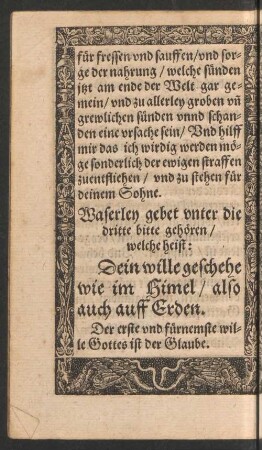 für fressen vnd sauffen/vnd sor-
ge der nahrung/welche sünden
jtzt am ende der Welt gar ge-
mein/vnd zu allerley groben vn̄
grewlichen sünden vnnd schan-
den eine vrsache sein/Vnd hilff
mir das ich wirdig werden mö-
ge sonderlich der ewigen straffen
zuentfliehen/vnd zu stehen für
deinem Sohne.
Waserley gebet vnter die
dritte bitte gehören/
welche heist:
Dein wille geschehe
wie im Himel/also
auch auff Erden.
Der erste vnd fürnemste wil-
le Gottes ist der Glaube.